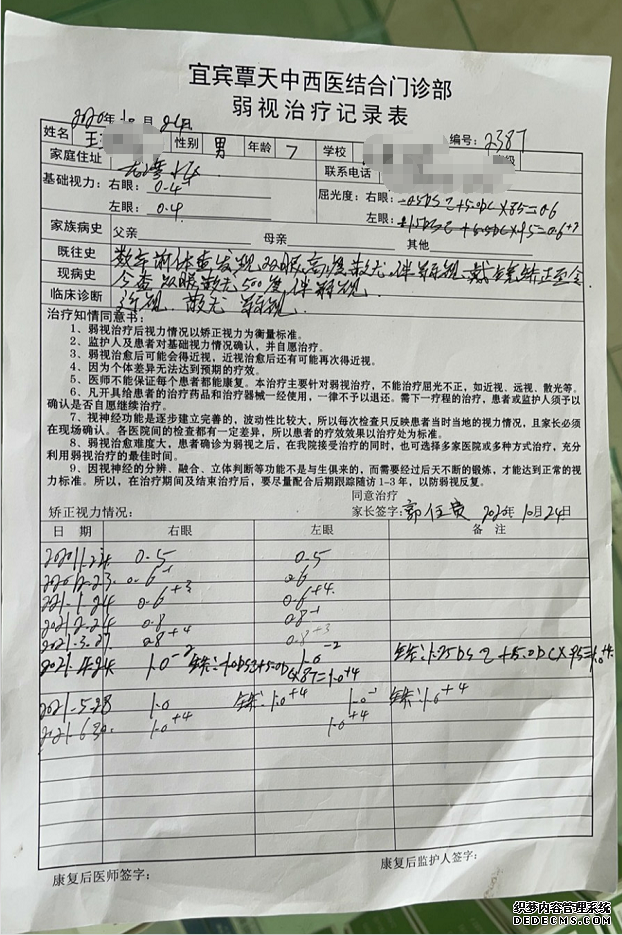 宜宾覃天中西医结合门诊部
弱视治疗记录表
2020年10月24日
编号: 2387
姓名 王 性别 男 年龄 7 学校 级
家庭住址 联系电话
基础视力: 右眼: 0.4 屈光度: 右眼:
左眼: 0.4 左眼:
家族病史 父亲 母亲 其他
既往史 数年前体查发现双眼高度散光伴弱视,戴镜矫正至今.
现病史 今查双眼散光500度伴弱视
临床诊断 近视 散光 弱视
治疗知情同意书:
1、弱视治疗后视力情况以矫正视力为衡量标准。
2、监护人及患者对基础视力情况确认,并自愿治疗。
3、弱视治愈后可能会得近视,近视治愈后还有可能再次得近视。
4、因为个体差异无法达到预期的疗效。
5、医师不能保证每个患者都能康复。本治疗主要针对弱视治疗,不能治疗屈光不正,如近视、远视、散光等。
6、凡开具给患者的治疗药品和治疗器械一经使用,一律不予以退还。需下一疗程的治疗,患者或监护人须予以
确认是否自愿继续治疗。
7、视神经功能是逐步建立完善的,波动性比较大,所以每次检查只反映患者当时当地的视力情况,且家长必须
在现场确认。各医院间的检查都有一定差异,所以患者的疗效效果以治疗处为标准。
8、弱视治愈难度大,患者确诊为弱视之后,在我院接受治疗的同时,也可选择多家医院或多种方式治疗,充分
利用弱视治疗的最佳时间。
9、因视神经的分辨、融合、立体判断等功能不是与生俱来的,而需要经过后天不断的锻炼,才能达到正常的视
力标准。所以,在治疗期间及结束治疗后,要尽量配合后期跟踪随访1-3年,以防弱视反复。
同意治疗
矫正视力情况: 家长签字: 2020年10月24日
日 期 右眼 左眼 备 注
0.5 0.5
0.6
2021.1.24 0.6+3 0.6+4
2021.2.24 0.8 0.8-1
2021.3.27 0.8+4 0.8+3
2021.4.24 1.0-2 1.0-2
2021.5.28 1.0 1.0+4 1.0-1 1.0+4
1.0+4 1.0+4
康复后医师签字: 康复后监护人签字:
织梦内容管理系统
DEDECMS.COM